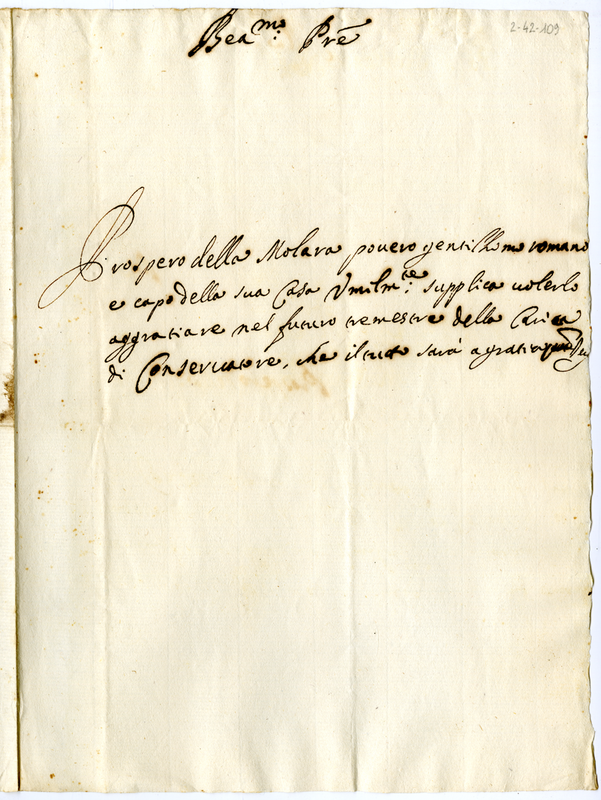 Bea.mo Prē
2-42-109
Prospero della Molara povero gentilhomo romano
e capo della sua Casa Vmilm.te supplica uolerlo
aggratiare nel futuro tremestre della Carica
di Conseruatore, che il tutto sarà a gratia